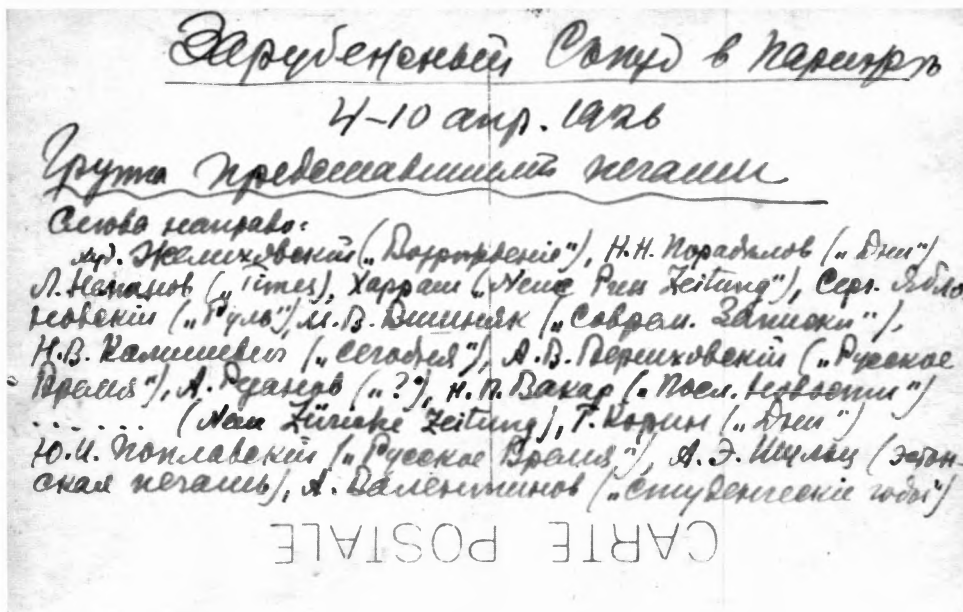 Зарубежный Съезд в Париже
4-10 апр. 1926
Группа представителей печати
Слева направо:
худ. Желиховский („Возрождение“), Н.Н. Порадѣлов („Дни“)
Л. Неманов („Times), Харраш („Neue Zeitung“), Серг. Ябло
новский („Руль“) М.В. Вишняк („Соврем. Записки“),
Н.В. Калишевич („Сегодня“), А.В. („Русское
Время“), А. Руманов („?“), Н.П. Вакар („Посл. Новости“)
...... (Neue Züricke Zeitung), Г. Корин („Дни“)
Ю.И. Поплавский („Русское Время“), А.Э. Шульц (эстон-
ская печать), А. Валентинов („Студенческие годы“)
CARTE POSTALE